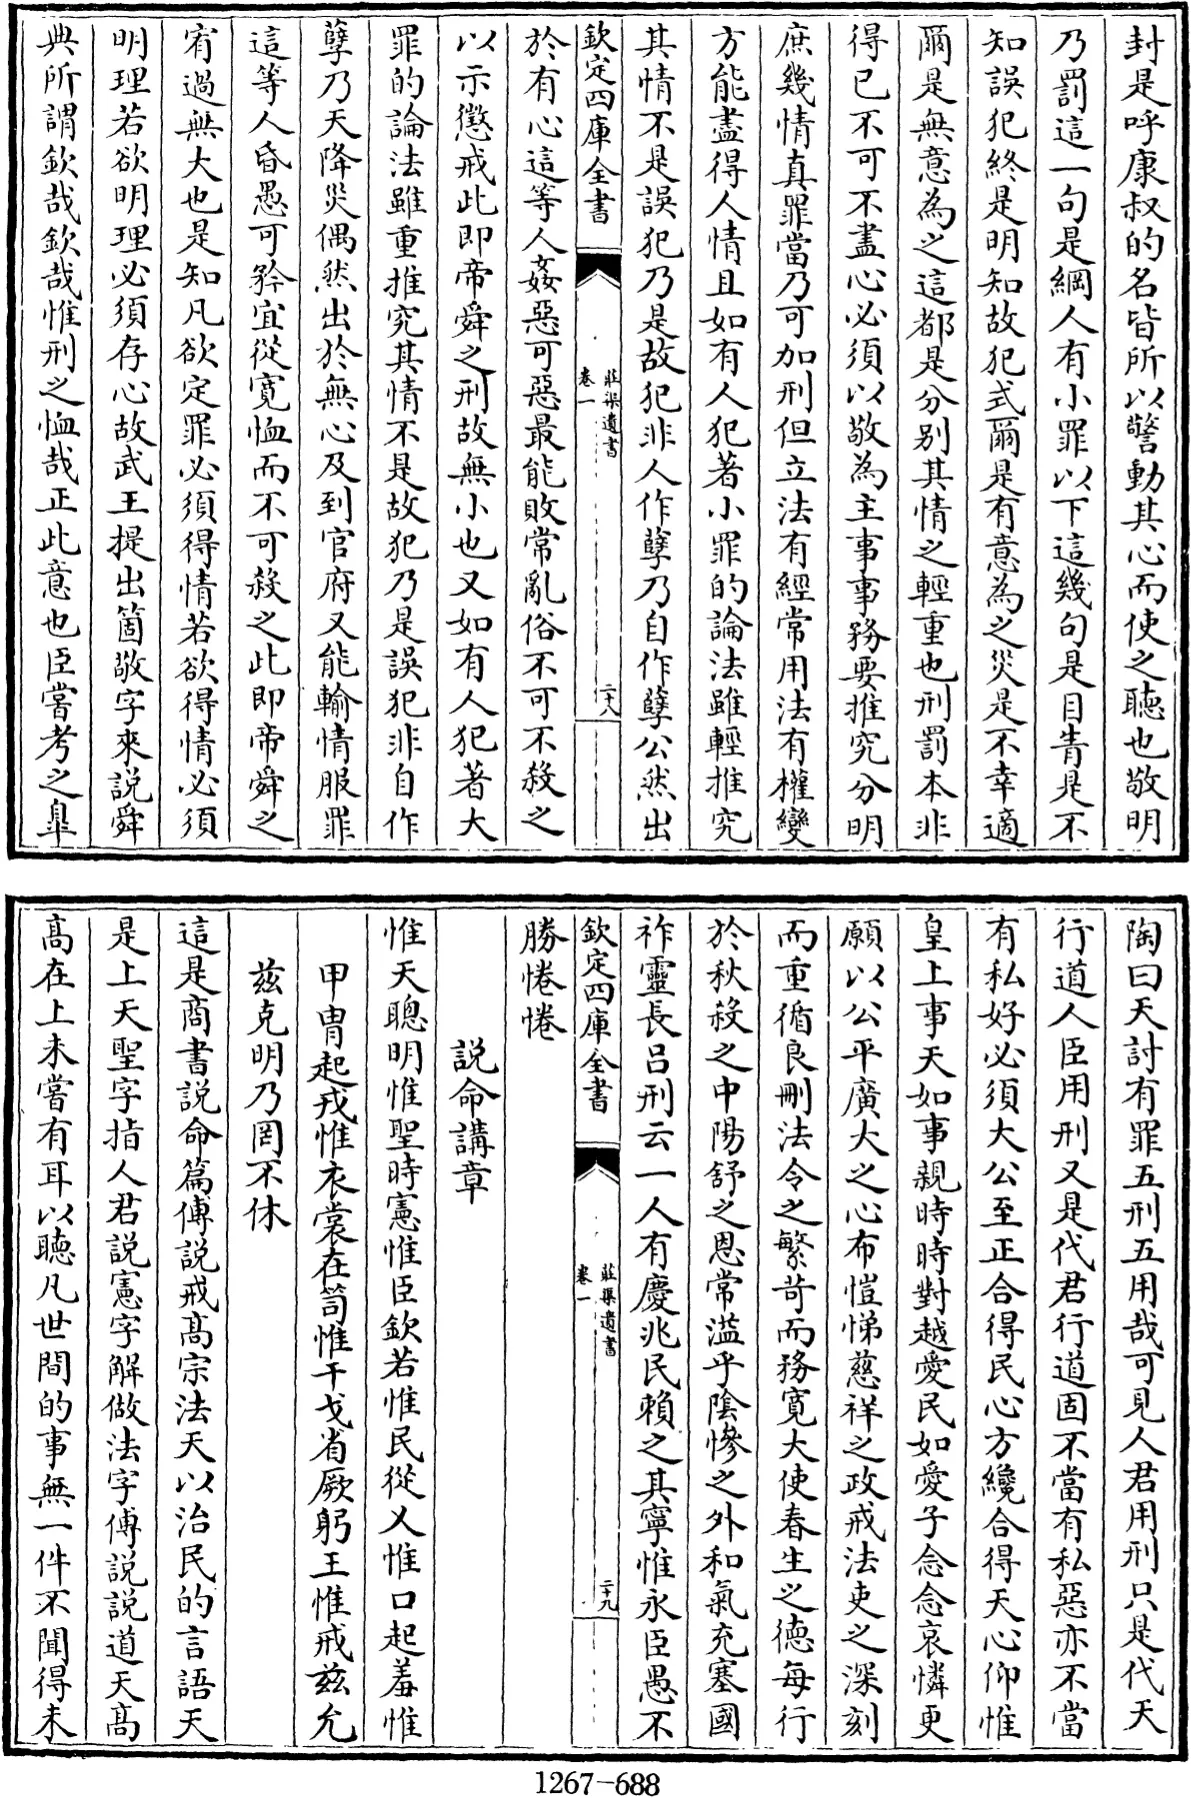 封是呼康叔的名皆所以警動其心而使之聽也敬明
乃罰這一句是綱人有小罪以下這幾句是目眚是不
知誤犯終是明知故犯式爾是有意為之災是不幸適
爾是無意為之這都是分别其情之輕重也刑罰本非
得已不可不盡心必須以敬為主事事務要推究分明
庶幾情真罪當乃可加刑但立法有經常用法有權變
方能盡得人情且如有人犯著小罪的論法雖輕推究
其情不是誤犯乃是故犯非人作孽乃自作孽公然出
欽定四庫全書
莊渠遺書
卷一
二十八
於有心這等人姦惡可惡最能敗常亂俗不可不殺之
以示懲戒此即帝舜之刑故無小也又如有人犯著大
罪的論法雖重推究其情不是故犯乃是誤犯非自作
孽乃天降災偶然出於無心及到官府又能輸情服罪
這等人昏愚可矜宜從寛恤而不可殺之此即帝舜之
宥過無大也是知凡欲定罪必須得情若欲得情必須
明理若欲明理必須存心故武王提出箇敬字來説舜
典所謂欽哉欽哉惟刑之恤哉正此意也臣嘗考之臯
陶曰天討有罪五刑五用哉可見人君用刑只是代天
行道人臣用刑又是代君行道固不當有私惡亦不當
有私好必須大公至正合得民心方纔合得天心仰惟
皇上事天如事親時時對越愛民如愛子念念哀憐更
願以公平廣大之心布愷悌慈祥之政戒法吏之深刻
而重循良刪法令之繁苛而務寛大使春生之德每行
於秋殺之中陽舒之恩常溢乎陰慘之外和氣充塞國
祚靈長吕刑云一人有慶兆民賴之其寧惟永臣愚不
欽定四庫全書
莊渠遺書
卷一
二十九
勝惓惓
説命講章
惟天聰明惟聖時憲惟臣欽若惟民從乂惟口起羞惟
甲胄起戎惟衣裳在笥惟干戈省厥躬王惟戒兹允
兹克明乃罔不休
這是商書説命篇傅説戒髙宗法天以治民的言語天
是上天聖字指人君説憲字解做法字傅説説道天髙
髙在上未嘗有耳以聽凡世間的事無一件不聞得未
1267-688